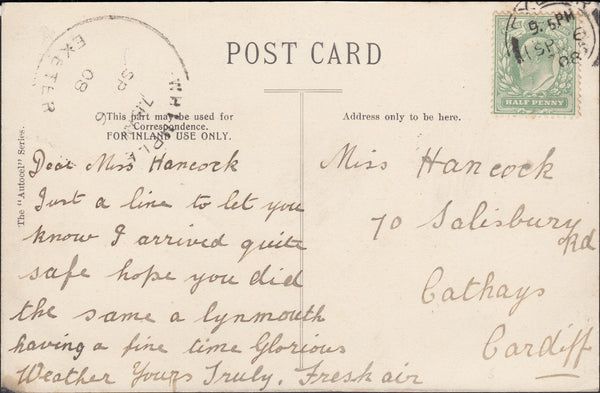 POST CARD
This part may be used for
Correspondence.
FOR INLAND USE ONLY.
Address only to be here.
The "Autocel" Series.
HALF PENNY
WHIMPLE
EXETER
SP 6
08
9. 5PM
SP 6
08
Dear Miss Hancock
Just a line to let you
know I arrived quite
safe hope you did
the same a lynmouth
having a fine time Glorious
Weather Yours Truly. Fresh air
Miss Hancock
70 Salisbury
Rd
Cathays
Cardiff